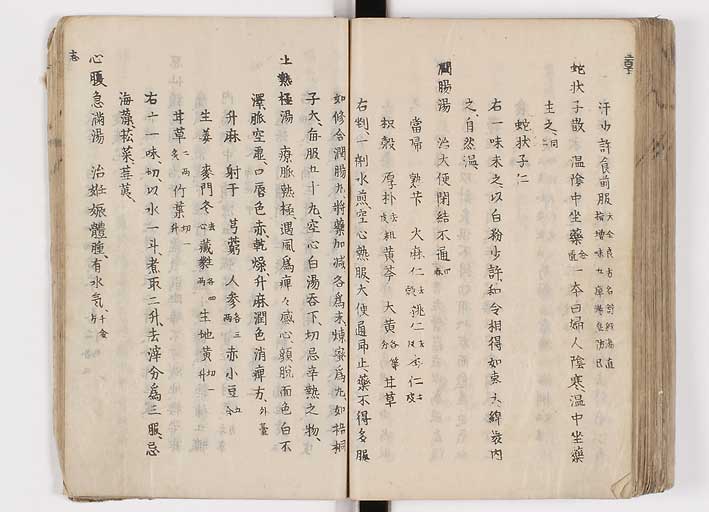 汗少許食前服
蛇状子散 温陰中坐藥 金匱 一本曰婦人陰寒温中坐藥
主之
蛇状子仁
右一味末之以白粉少許和令相得如棗大綿裹内
之、自然温、
潤腸湯 治大便閉結不通
當帰 熟芐 火麻仁 桃仁 杏仁
枳殻 厚朴 黄芩 大黄 各等分 甘草
右剉、一劑水煎、空心熱服、大便通即止、藥不得多服
如修合潤腸丸、將藥加減各爲末、煉蜜爲丸、如梧桐
子大、毎服五十丸、空心白湯吞下、切忌辛熱之物、
上熱極湯 療脈熱極、遇風爲痺々感心顔脱而色白不
澤、脈空虚口唇色赤、乾燥、升麻潤色消痺方、外臺
升麻 射干 芎藭 人参 各三两 赤小豆 五合
生姜 麥門冬 去心 葳蕤 各四两 生地黄 切一升
甘草 二两炙 竹葉 切一升
右十一味、切、以水一斗、煮取二升、去滓分爲三服、忌
海藻菘菜蕪荑、
心腹急満湯 治妊娠體腫、有水気、千金方